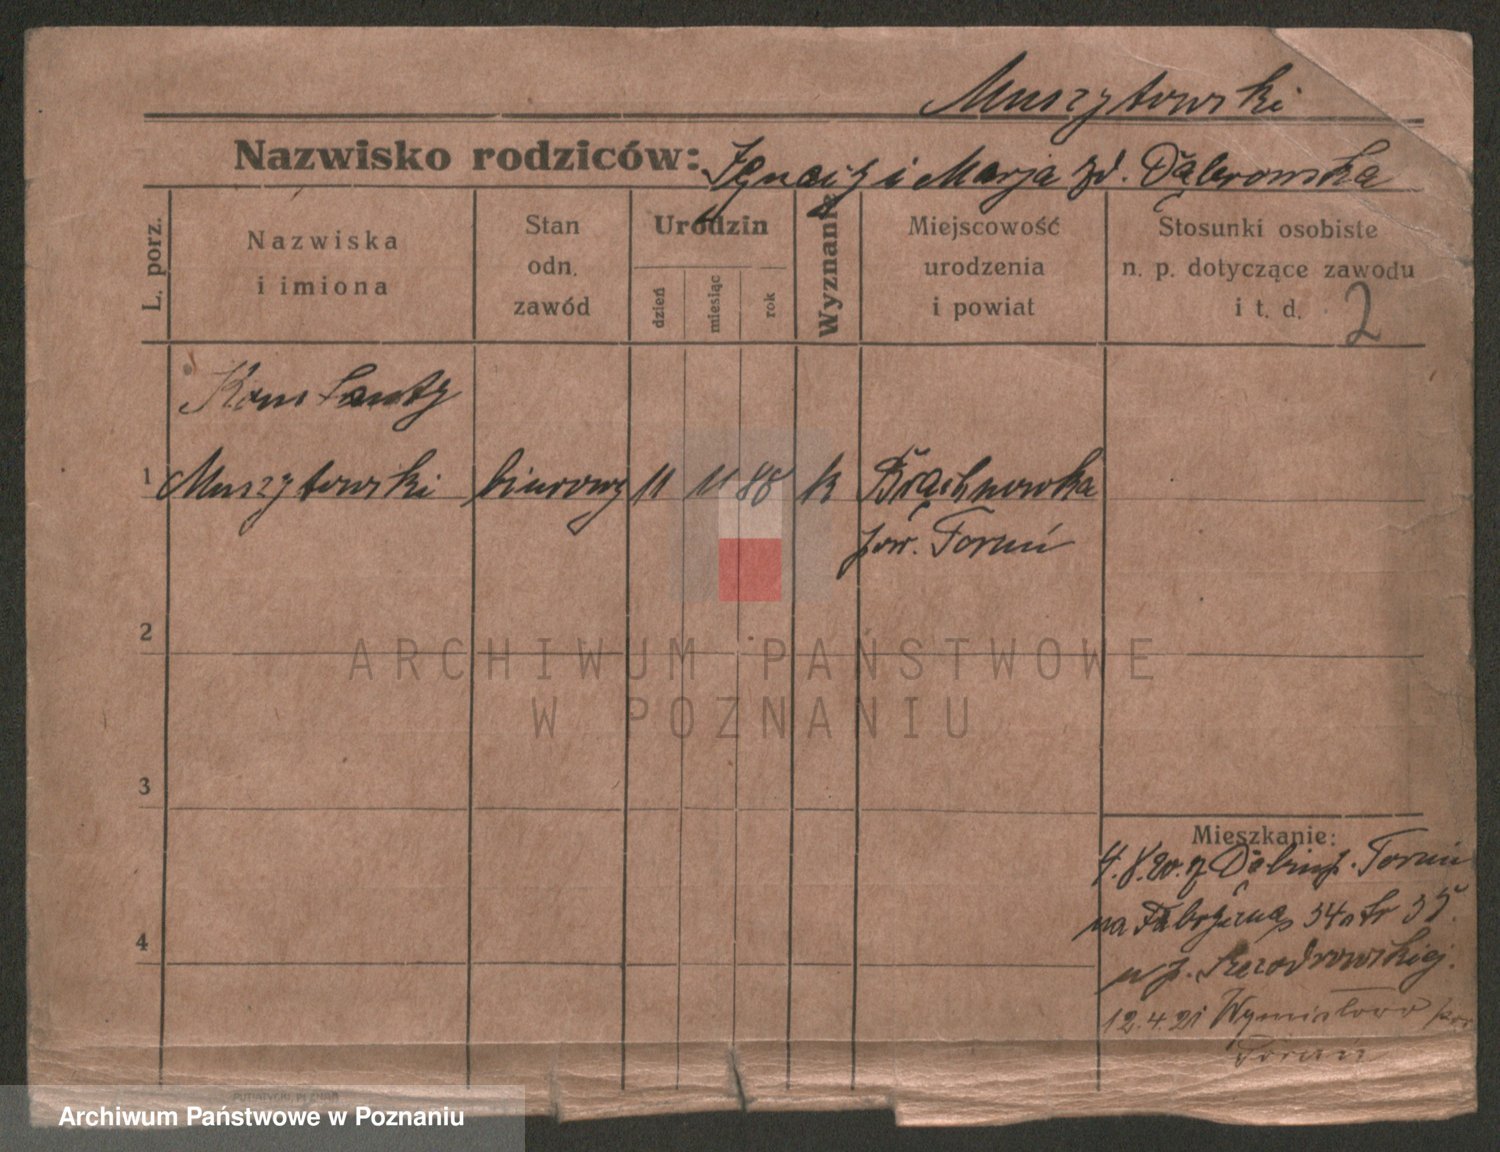 Muszytowski
Nazwisko rodziców: Ignacy i Marja zd. Dąbrowska
L. porz.
Nazwiska
i imiona
Stan
odn.
zawód
Urodzin
dzień
miesiąc
rok
Wyznanie
Miejscowość
urodzenia
i powiat
Stosunki osobiste
n. p. dotyczące zawodu
i t. d. 2
Konstanty
1 Muszytowski biurowy 11 11 88 k Brąchnowka
pow. Toruń
2
3
4
Mieszkanie:
4.8.20. z Toruń
na 34a
u p. Szczodrowskiej.
12.4.21 pow
Toruń
ARCHIWUM PAŃSTWOWE
W POZNANIU
PUTIATYCKI, POZNAŃ
Archiwum Państwowe w Poznaniu